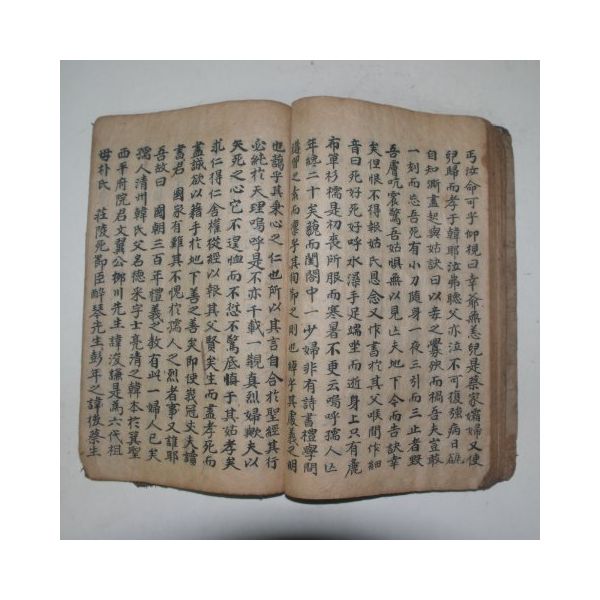 丐汝命可乎仰視曰幸爺無恙兒是蔡家孀婦又使
兒歸而孝子韓耶泣弗聽父亦泣不可復強病日
自知漸盡起與姑訣曰以毒之釁殃而禍吾夫豈敢
一刻而忘吾死有小刀隨身一夜三引而三止者毀
吾膚呪震驚吾姑惧無以見亡夫地下今而告訣幸
矣但恨不得報姑氏恩念又作書於其父喉間作細
音曰死好死好呼水澡手足端坐而逝身上只有麁
布單衫襦是初喪所服而寒暑不更云嗚呼孺人亡
年纔二十矣藐而閨閤中一少婦非有詩書禮學聞
也謁乎其秉心之仁也所以其言自合於聖經其行
必純於天理嗚呼是不亦千載一觀真烈婦歟夫以
矢死之心它不遑恤而不愆不騫底悔于其姑孝矣
求仁得仁舍權從經以報其父賢矣生而盡孝死而
盡誠欲以藉手於地下善之善矣卽使峩冠丈夫讀
書君國家有難其不愧於孺人之烈者事又誰耶
吾故曰國朝三百年禮義之教有此一婦人已矣
孺人清州韓氏父名德米字士亮清之韓本於箕聖
西平府院君文翼公柳川先生諱浚謙是爲六代祖
母朴氏莊陵死節臣醉琴先生彭年之諱後蔡生